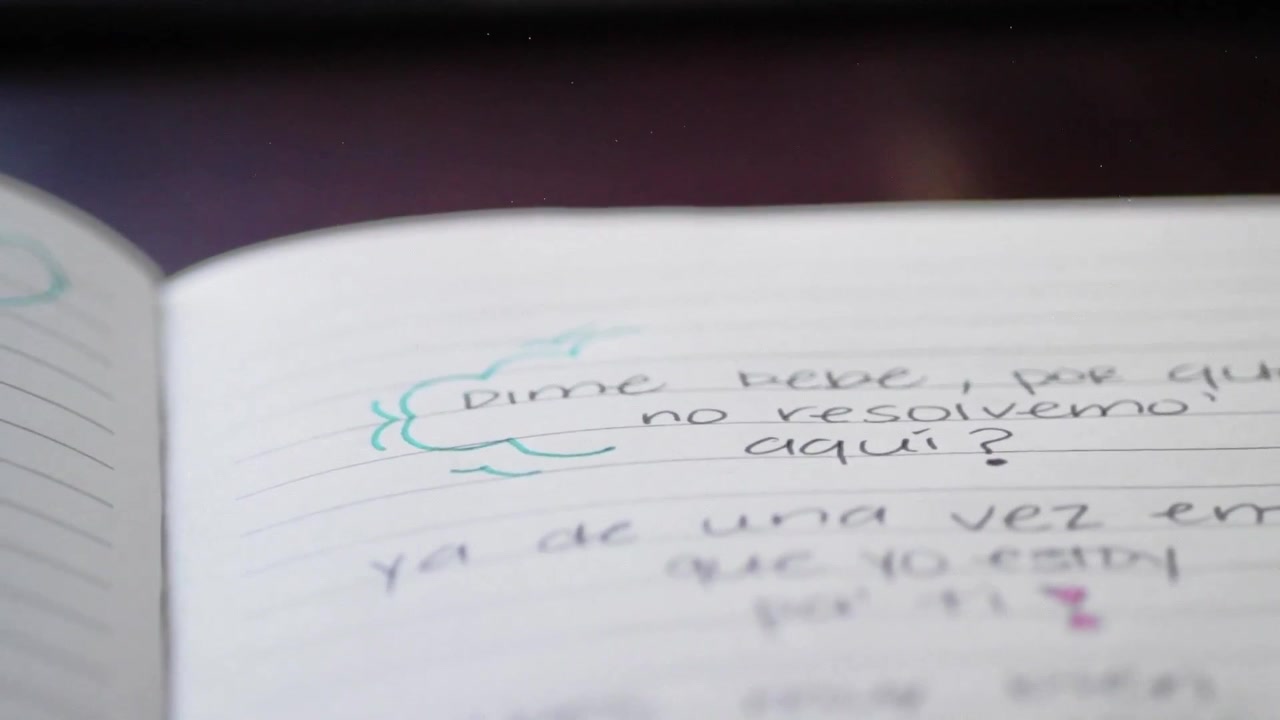 Dime bebe, por qu
no resolvemo'
aquí?
ya de una vez en
que yo estoy
por ti